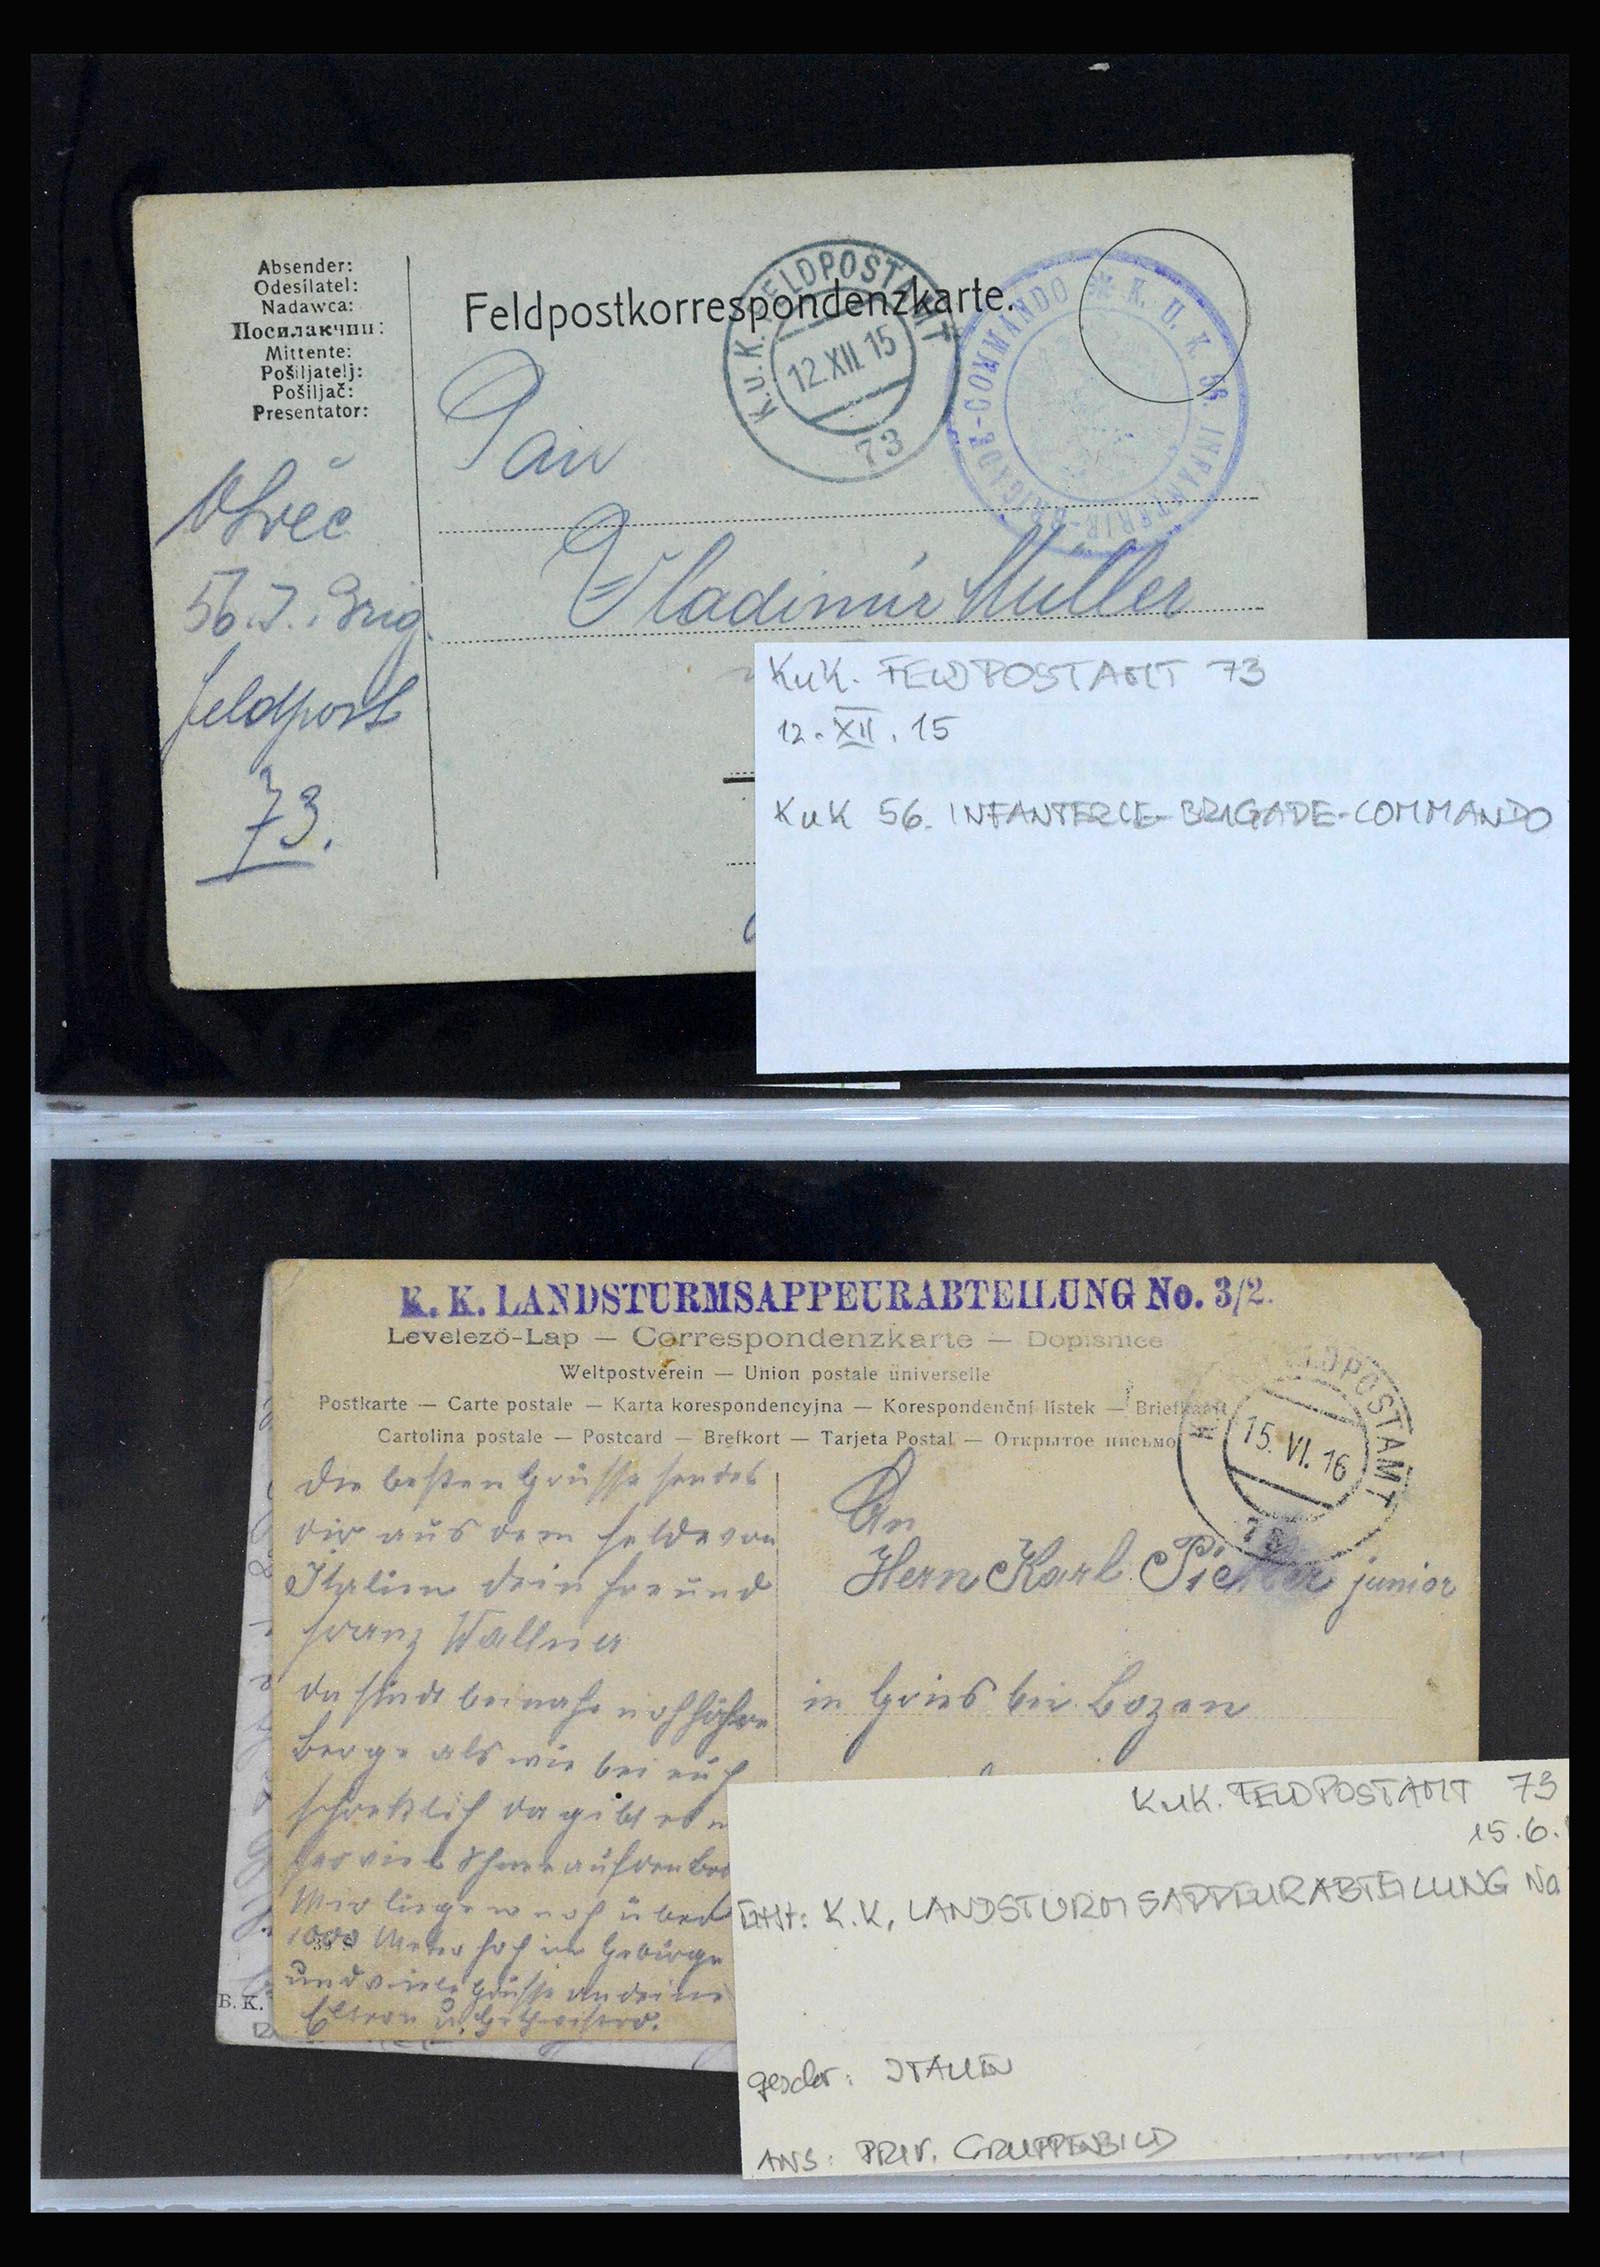 Absender:
Odesílatel:
Nadawca:
Посилакчии:
Mittente:
Pošiljatelj:
Pošiljač:
Presentator:
Feldpostkorrespondenzkarte.
K.u.K. FELDPOSTAMT
12.XII.15
73
K. U. K. 56. INFANTERIE-BRIGADE-COMMANDO
Pan
Vladimír Müller
56. I. Brig.
Feldpost
73.
KuK. FELDPOSTAMT 73
12. XII. 15
KuK 56. INFANTERIE-BRIGADE-COMMANDO
K. K. LANDSTURMSAPPEURABTEILUNG No. 3/2.
Levelező-Lap — Correspondenzkarte — Dopisnice
Weltpostverein — Union postale universelle
Postkarte — Carte postale — Karta korespondencyjna — Korespondenční lístek — Briefkaart
Cartolina postale — Postcard — Brefkort — Tarjeta Postal — Открытое письмо
FELDPOSTAMT
15. VI. 16
Die besten Grüsse sendet
dir aus dem Felde von
Italien dein Freund
Franz Wallner
da sind beinahe noch höhere
Berge als wie bei euch
schrecklich da gibt es
viel Schnee auf den
Wir liegen noch über
1000 Meter hoch im Gebirge
und viele Grüsse an deine
Eltern u. Geschwister.
An
Herrn Karl Pichler junior
in Gries bei Bozen
B. K.
KuK. FELDPOSTAMT 73
15.6.
K.K. LANDSTURMSAPPEURABTEILUNG No
geschr: ITALIEN
ANS: PRIV. GRUPPENBILD